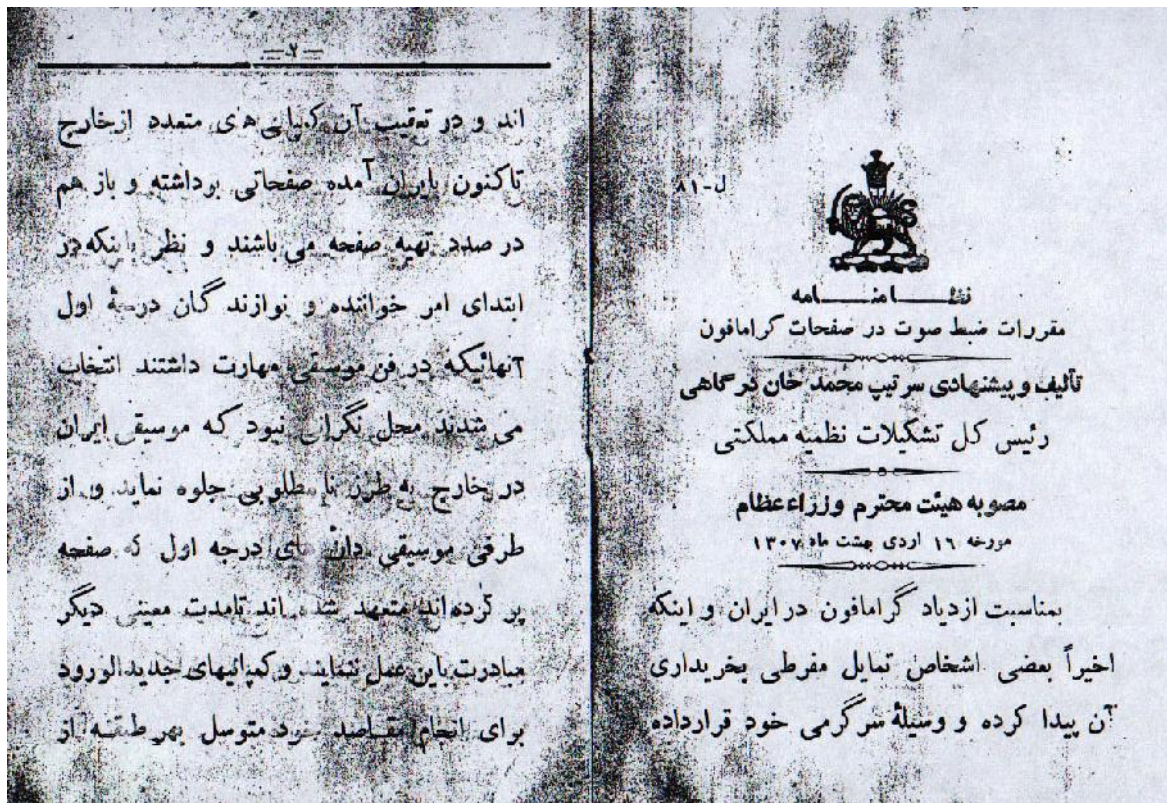 ل-۸۱
نظــــامنــــامه
مقررات ضبط صوت در صفحات گرامافون
تألیف و پیشنهادی سرتیپ محمد خان درگاهی
رئیس کل تشکیلات نظمیه مملکتی
مصوبه هیئت محترم وزراء عظام
مورخه ۱۶ اردی بهشت ماه ۱۳۰۷
بمناسبت ازدیاد گرامافون در ایران و اینکه
اخیراً بعضی اشخاص تمایل مفرطی بخریداری
آن پیدا کرده و وسیلهٔ سرگرمی خود قرارداده
— ۲ —
اند و در تعقیب آن کمپانی های متعدد از خارج
تاکنون بایران آمده صفحاتی برداشته و باز هم
در صدد تهیه صفحه می باشند و نظر باینکه در
ابتدای امر خواننده و نوازندگان درجهٔ اول
آنهائیکه در فن موسیقی مهارت داشتند انتخاب
می شدند محل نگرانی نبود که موسیقی ایران
در خارج به طرز نا مطلوبی جلوه نماید و از
طرفی موسیقی دان های درجه اول که صفحه
پر کرده اند متعهد شده اند تامدت معینی دیگر
مبادرت باین عمل ننمایند و کمپانیهای جدیدالورود
برای انجام مقاصد خود متوسل بهر طبقه از